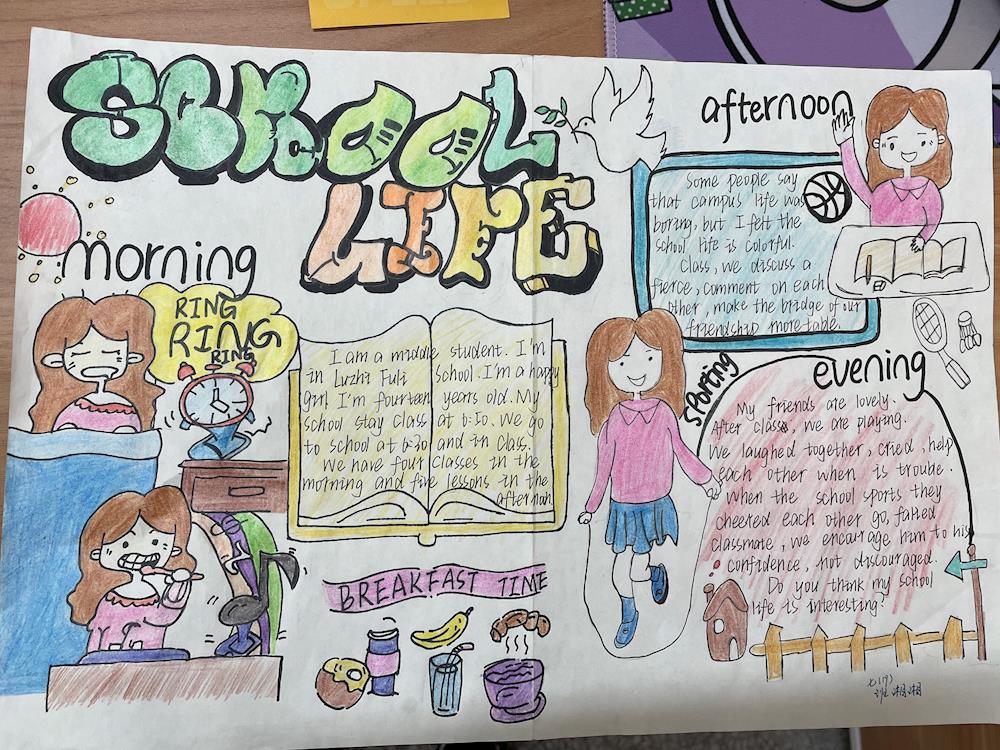 SCHOOL
LIFE
morning
RING
RING
RING
I am a middle student. I'm
in Luzhi Fuli School. I'm a happy
girl I'm fourteen years old. My
school stay class at 6:50. We go
to school at 6:30 and in class.
We have four classes in the
morning and five lessons in the
afternoon
BREAKFAST TIME
afternoon
Some people say
that campus life was
boring, but I felt the
school life is colorful.
Class, we discuss a
fierce, comment on each
other, make the bridge of our
friendship more table.
sporting
evening
My friends are lovely.
After class, we are playing.
We laughed together, cried, help
each other when is trouble.
When the school sports they
cheered each other go, failed
classmate, we encourage him to his
confidence, not discouraged.
Do you think my school
life is interesting?